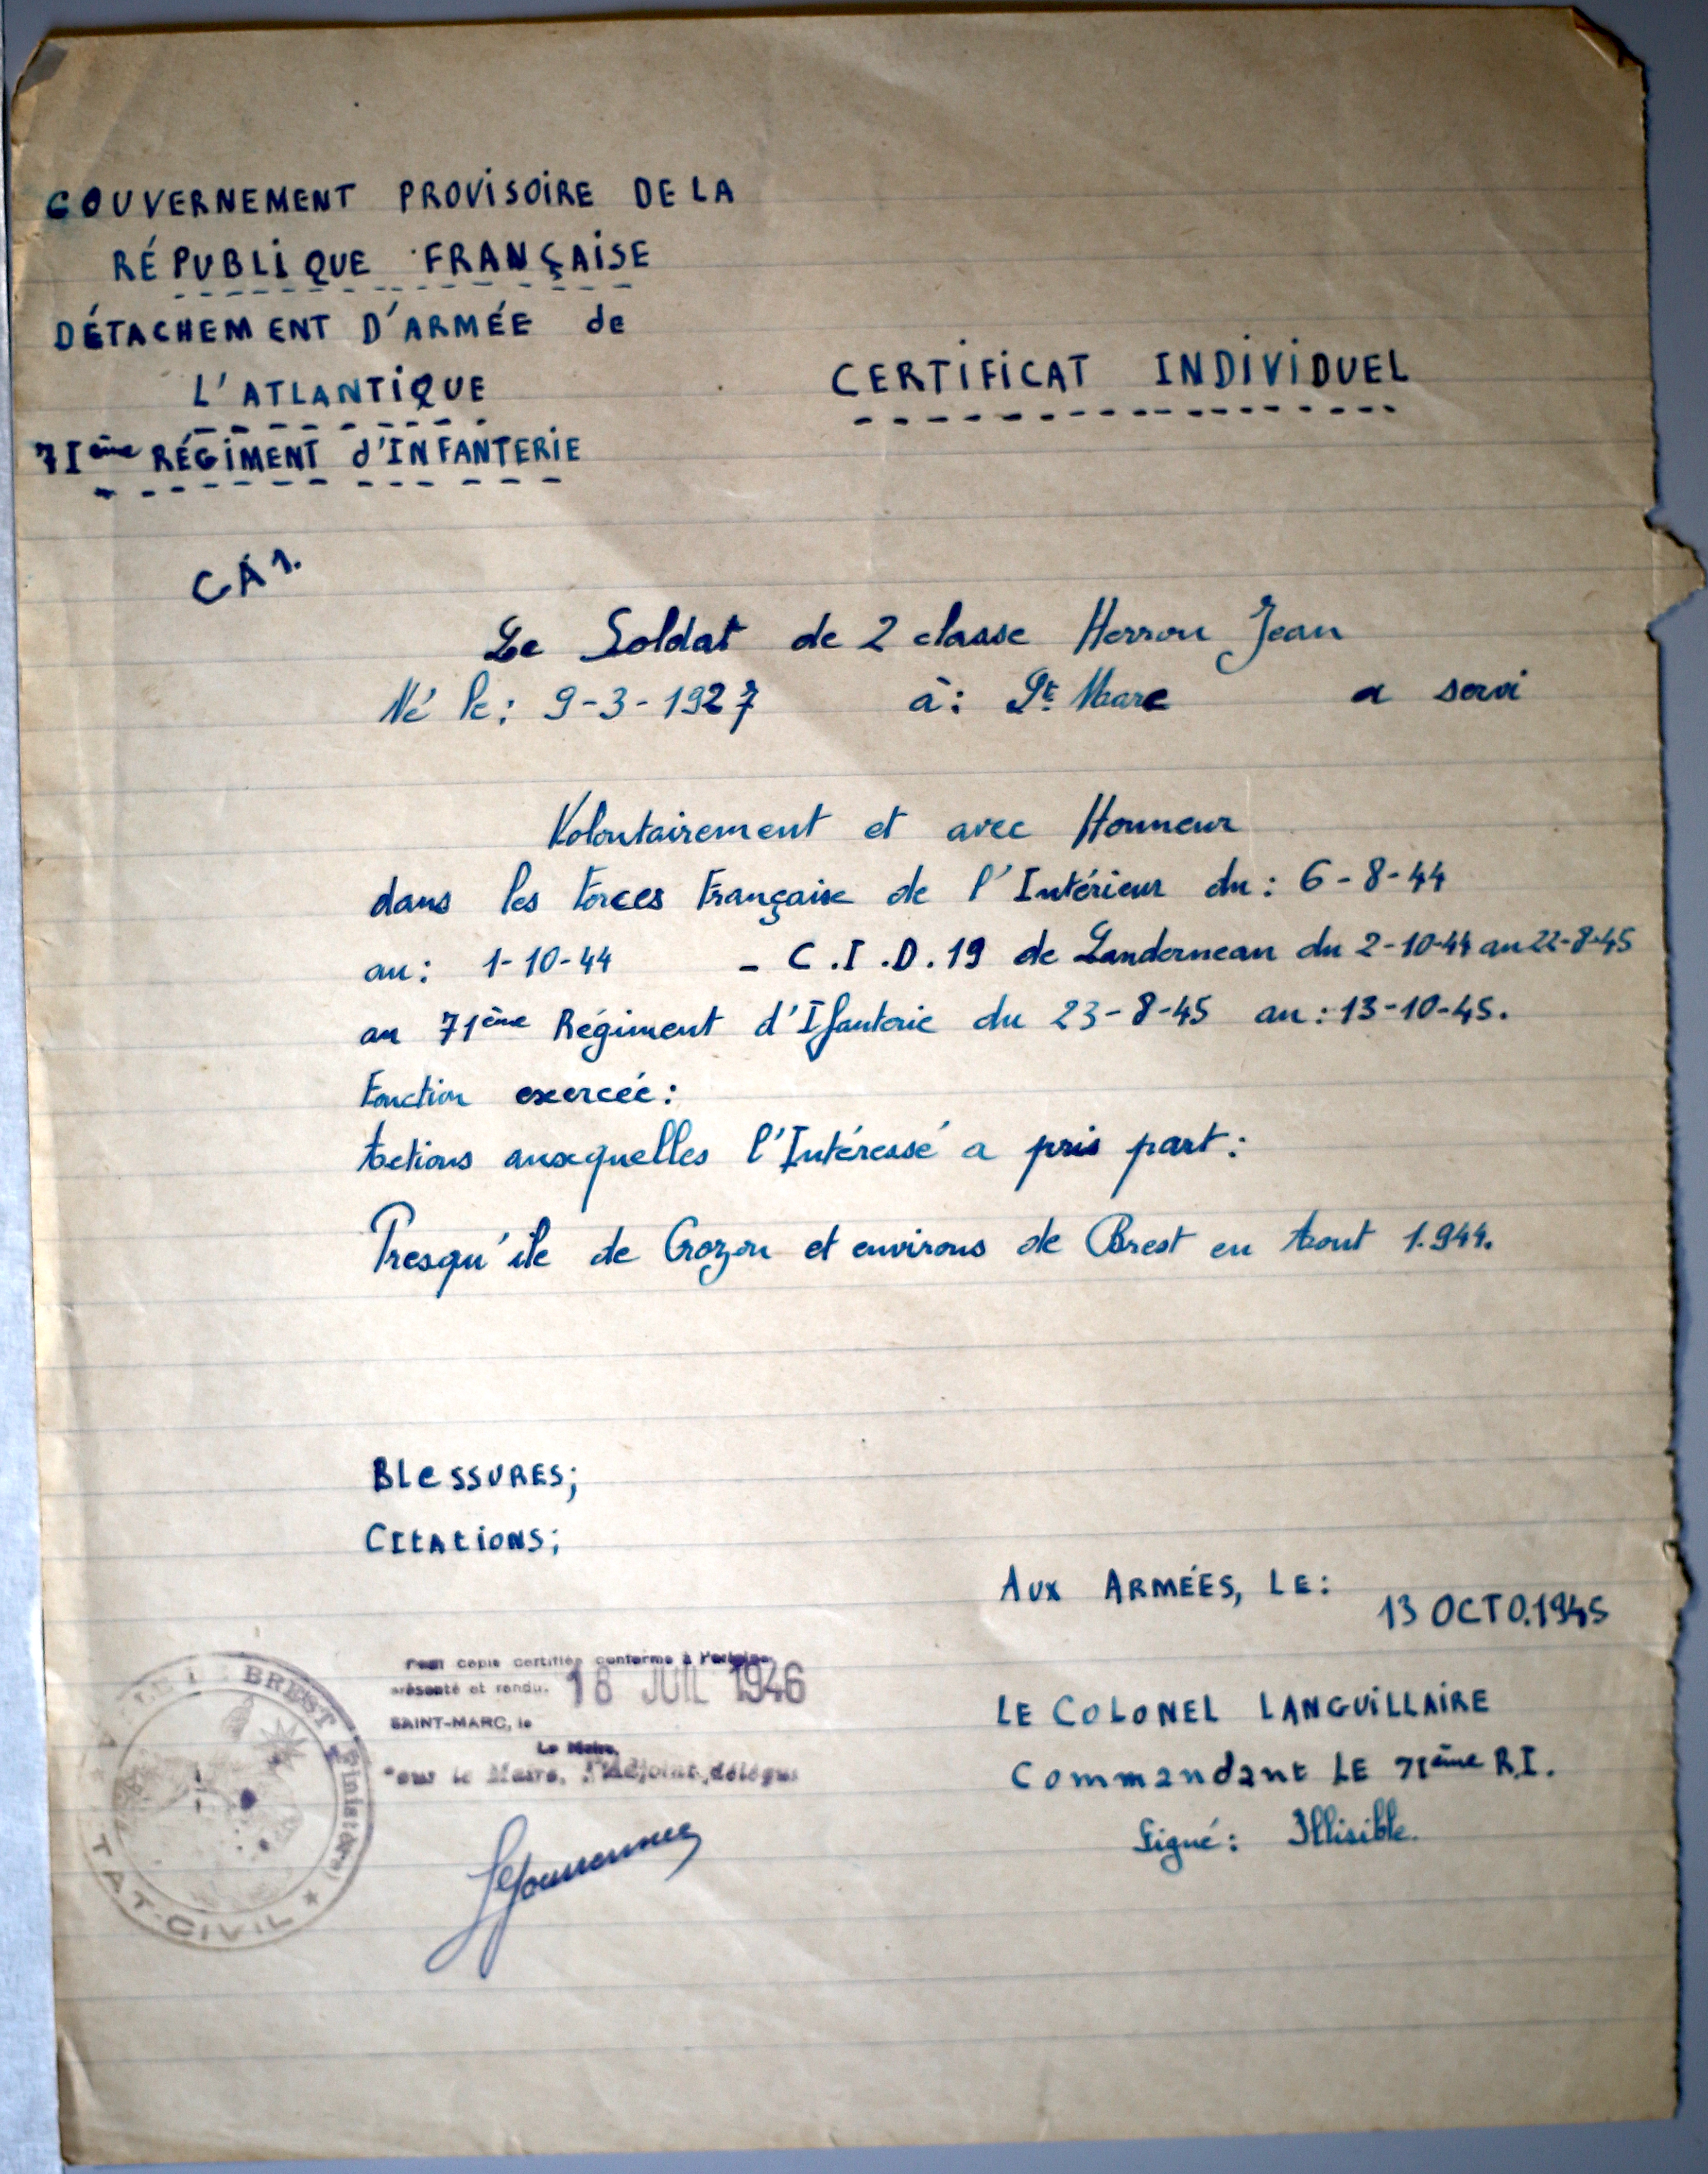 GOUVERNEMENT PROVISOIRE DE LA
RÉPUBLIQUE FRANÇAISE
DÉTACHEMENT D'ARMÉE de
L'ATLANTIQUE
71ème RÉGIMENT d'INFANTERIE
CERTIFICAT INDIVIDUEL
CA1.
Le Soldat de 2 classe Herrou Jean
Né le : 9-3-1927 à : St Marc a servi
Volontairement et avec Honneur
dans les Forces Française de l'Intérieur du : 6-8-44
au : 1-10-44 - C.I.D.19 de Landerneau du 2-10-44 au 22-8-45
au 71ème Régiment d'Ifanterie du 23-8-45 au : 13-10-45.
Fonction exercée :
Actions auxquelles l'Intéressé a pris part :
Presqu'ile de Crozon et environs de Brest en Aout 1.944.
BLESSURES;
CITATIONS;
AUX ARMÉES, LE :
13 OCTO.1945
LE COLONEL LANGUILLAIRE
Commandant LE 71ème R.I.
Signé : Illisible.
Pour copie certifiée conforme à l'original
présenté et rendu. 18 JUIL 1946
SAINT-MARC, le
Le Maire,
Pour le Maire, l'Adjoint délégué
BREST (Finistère)
ÉTAT-CIVIL